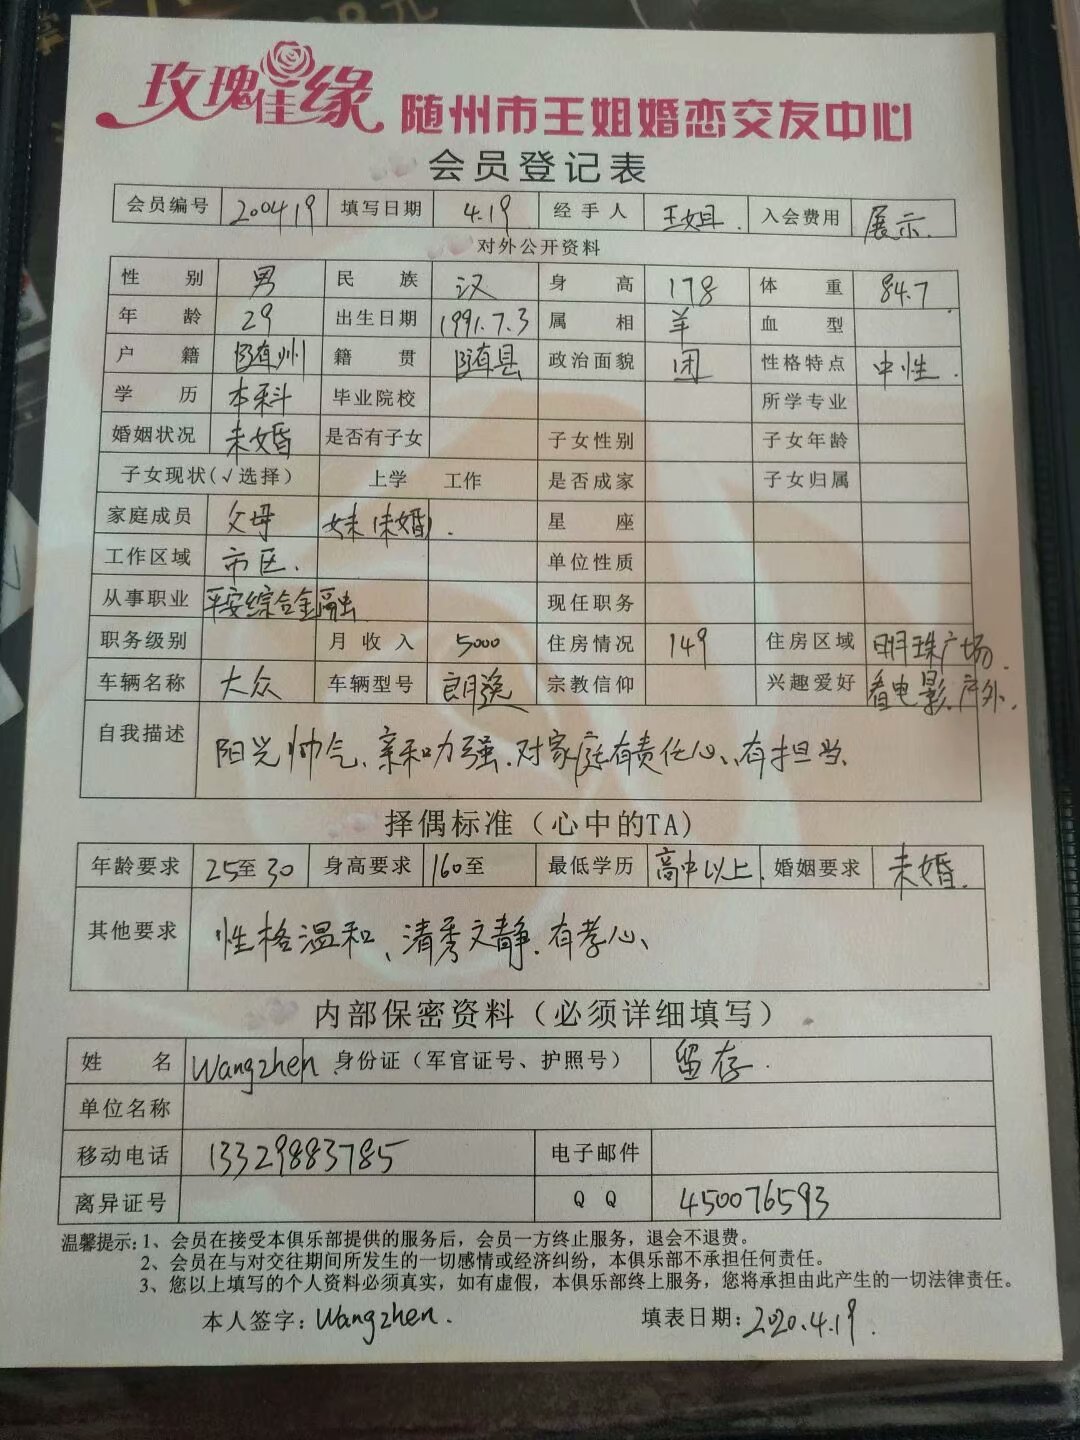 玫瑰佳缘 随州市王姐婚恋交友中心
会员登记表
会员编号 200419 填写日期 4.19 经手人 王姐. 入会费用 展示.
对外公开资料
性别 男 民族 汉 身高 178 体重 84.7
年龄 29 出生日期 1991.7.3 属相 羊 血型
户籍 随州 籍贯 随县 政治面貌 团 性格特点 中性.
学历 本科 毕业院校 所学专业
婚姻状况 未婚 是否有子女 子女性别 子女年龄
子女现状(√选择) 上学 工作 是否成家 子女归属
家庭成员 父母 妹(未婚). 星座
工作区域 市区. 单位性质
从事职业 平安综合金融 现任职务
职务级别 月收入 5000 住房情况 149 住房区域 明珠广场.
车辆名称 大众 车辆型号 朗逸 宗教信仰 兴趣爱好 看电影.户外.
自我描述 阳光帅气、亲和力强.对家庭有责任心、有担当、
择偶标准（心中的TA)
年龄要求 25至30 身高要求 160至 最低学历 高中以上. 婚姻要求 未婚.
其他要求 性格温和、清秀文静.有孝心、
内部保密资料（必须详细填写）
姓名 Wangzhen 身份证（军官证号、护照号） 留存.
单位名称
移动电话 13329883785 电子邮件
离异证号 QQ 450076593
温馨提示:1、会员在接受本俱乐部提供的服务后，会员一方终止服务，退会不退费。
2、会员在与对交往期间所发生的一切感情或经济纠纷，本俱乐部不承担任何责任。
3、您以上填写的个人资料必须真实，如有虚假，本俱乐部终上服务，您将承担由此产生的一切法律责任。
本人签字:Wangzhen. 填表日期:2020.4.19.